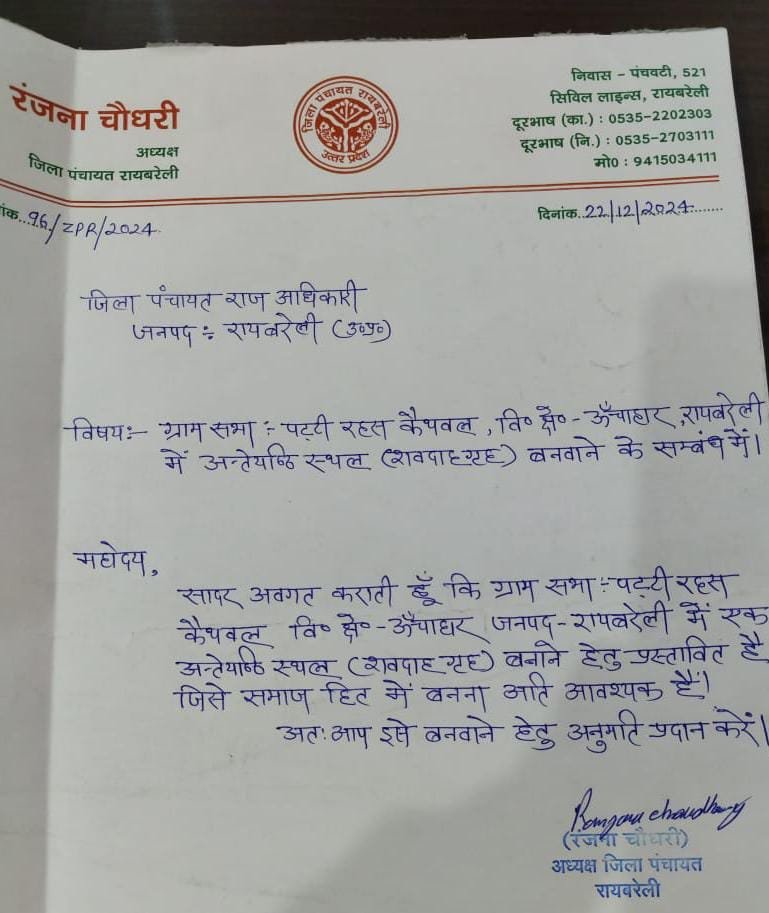 रंजना चौधरी
अध्यक्ष
जिला पंचायत रायबरेली
जिला पंचायत रायबरेली
उत्तर प्रदेश
निवास - पंचवटी, 521
सिविल लाइन्स, रायबरेली
दूरभाष (का.) : 0535-2202303
दूरभाष (नि.) : 0535-2703111
मो० : 9415034111
ांक...96/ZPR/2024.
दिनांक..22/12/2024.......
जिला पंचायत राज अधिकारी
जनपद ÷ रायबरेली (उ०प्र०)
विषयः- ग्राम सभा ÷ पट्टी रहस कैथवल, वि० क्षे० - ऊँचाहार, रायबरेली
में अन्तेयष्ठि स्थल (शवदाह गृह) बनवाने के सम्बंध में।
महोदय,
सादर अवगत कराती हूँ कि ग्राम सभा ÷ पट्टी रहस
कैथवल वि० क्षे० - ऊँचाहार जनपद - रायबरेली में एक
अन्तेयष्ठि स्थल (शवदाह गृह) बनाने हेतु प्रस्तावित है
जिसे समाज हित में बनना अति आवश्यक है।
अतः आप इसे बनवाने हेतु अनुमति प्रदान करें।
Ranjana choudhary
(रंजना चौधरी)
अध्यक्ष जिला पंचायत
रायबरेली